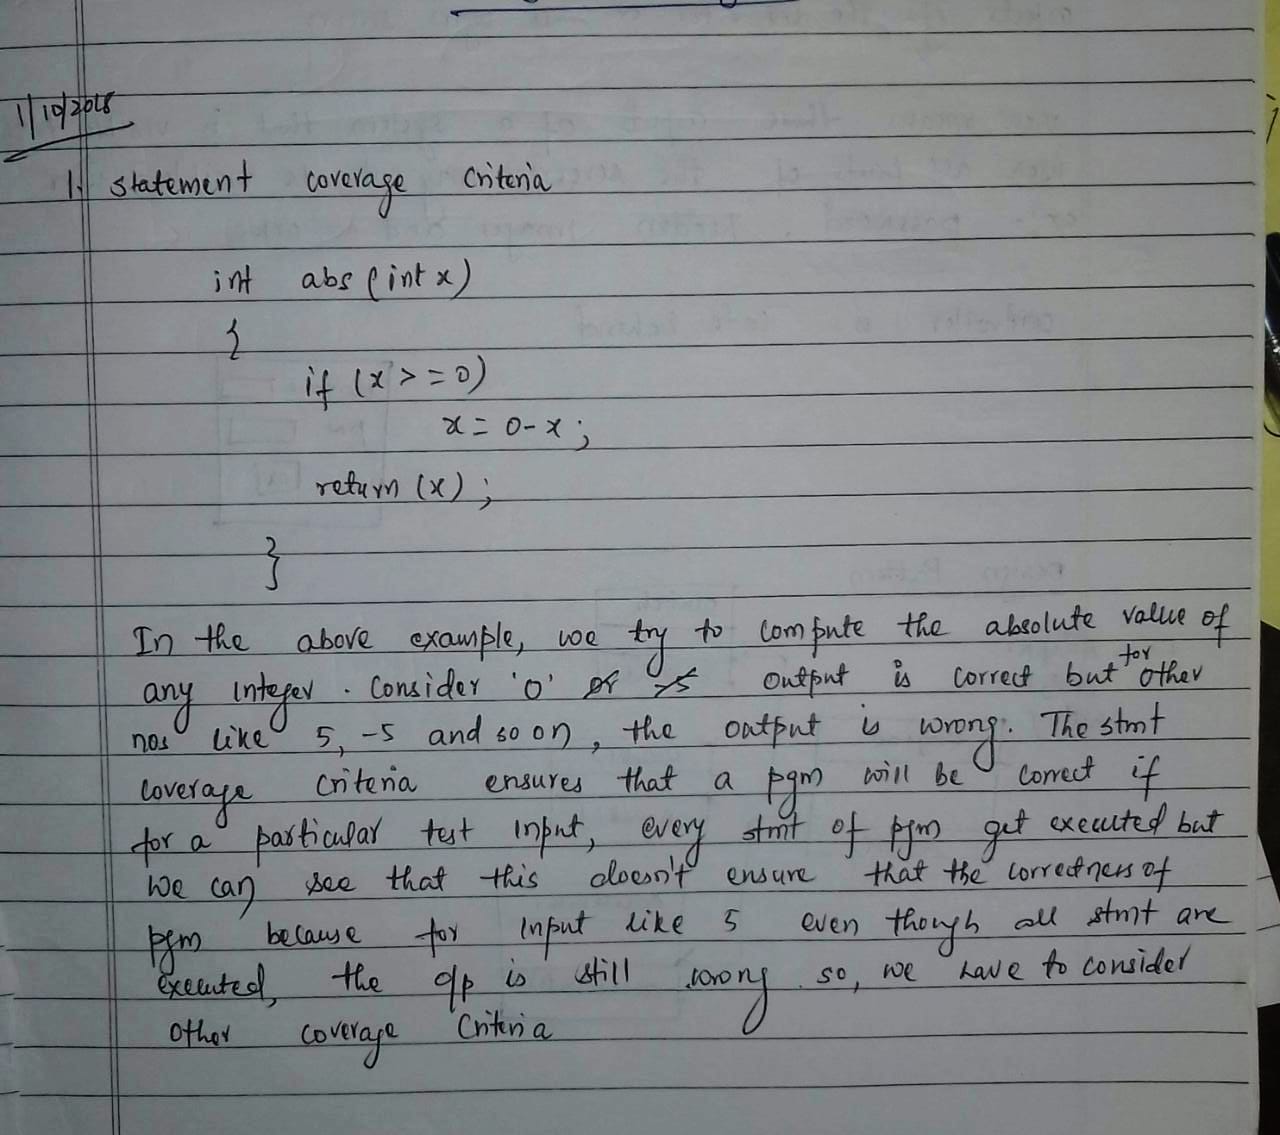 1/10/2018
1. statement coverage criteria
int abs (int x)
{
if (x >= 0)
x = 0 - x ;
return (x) ;
}
In the above example, we try to compute the absolute value of
any integer. Consider '0' output is correct but for other
nos like 5, -5 and so on, the output is wrong. The stmt
coverage criteria ensures that a pgm will be correct if
for a particular test input, every stmt of pgm get executed but
we can see that this doesn't ensure that the correctness of
pgm because for input like 5 even though all stmt are
executed, the o/p is still wrong. so, we have to consider
other coverage criteria